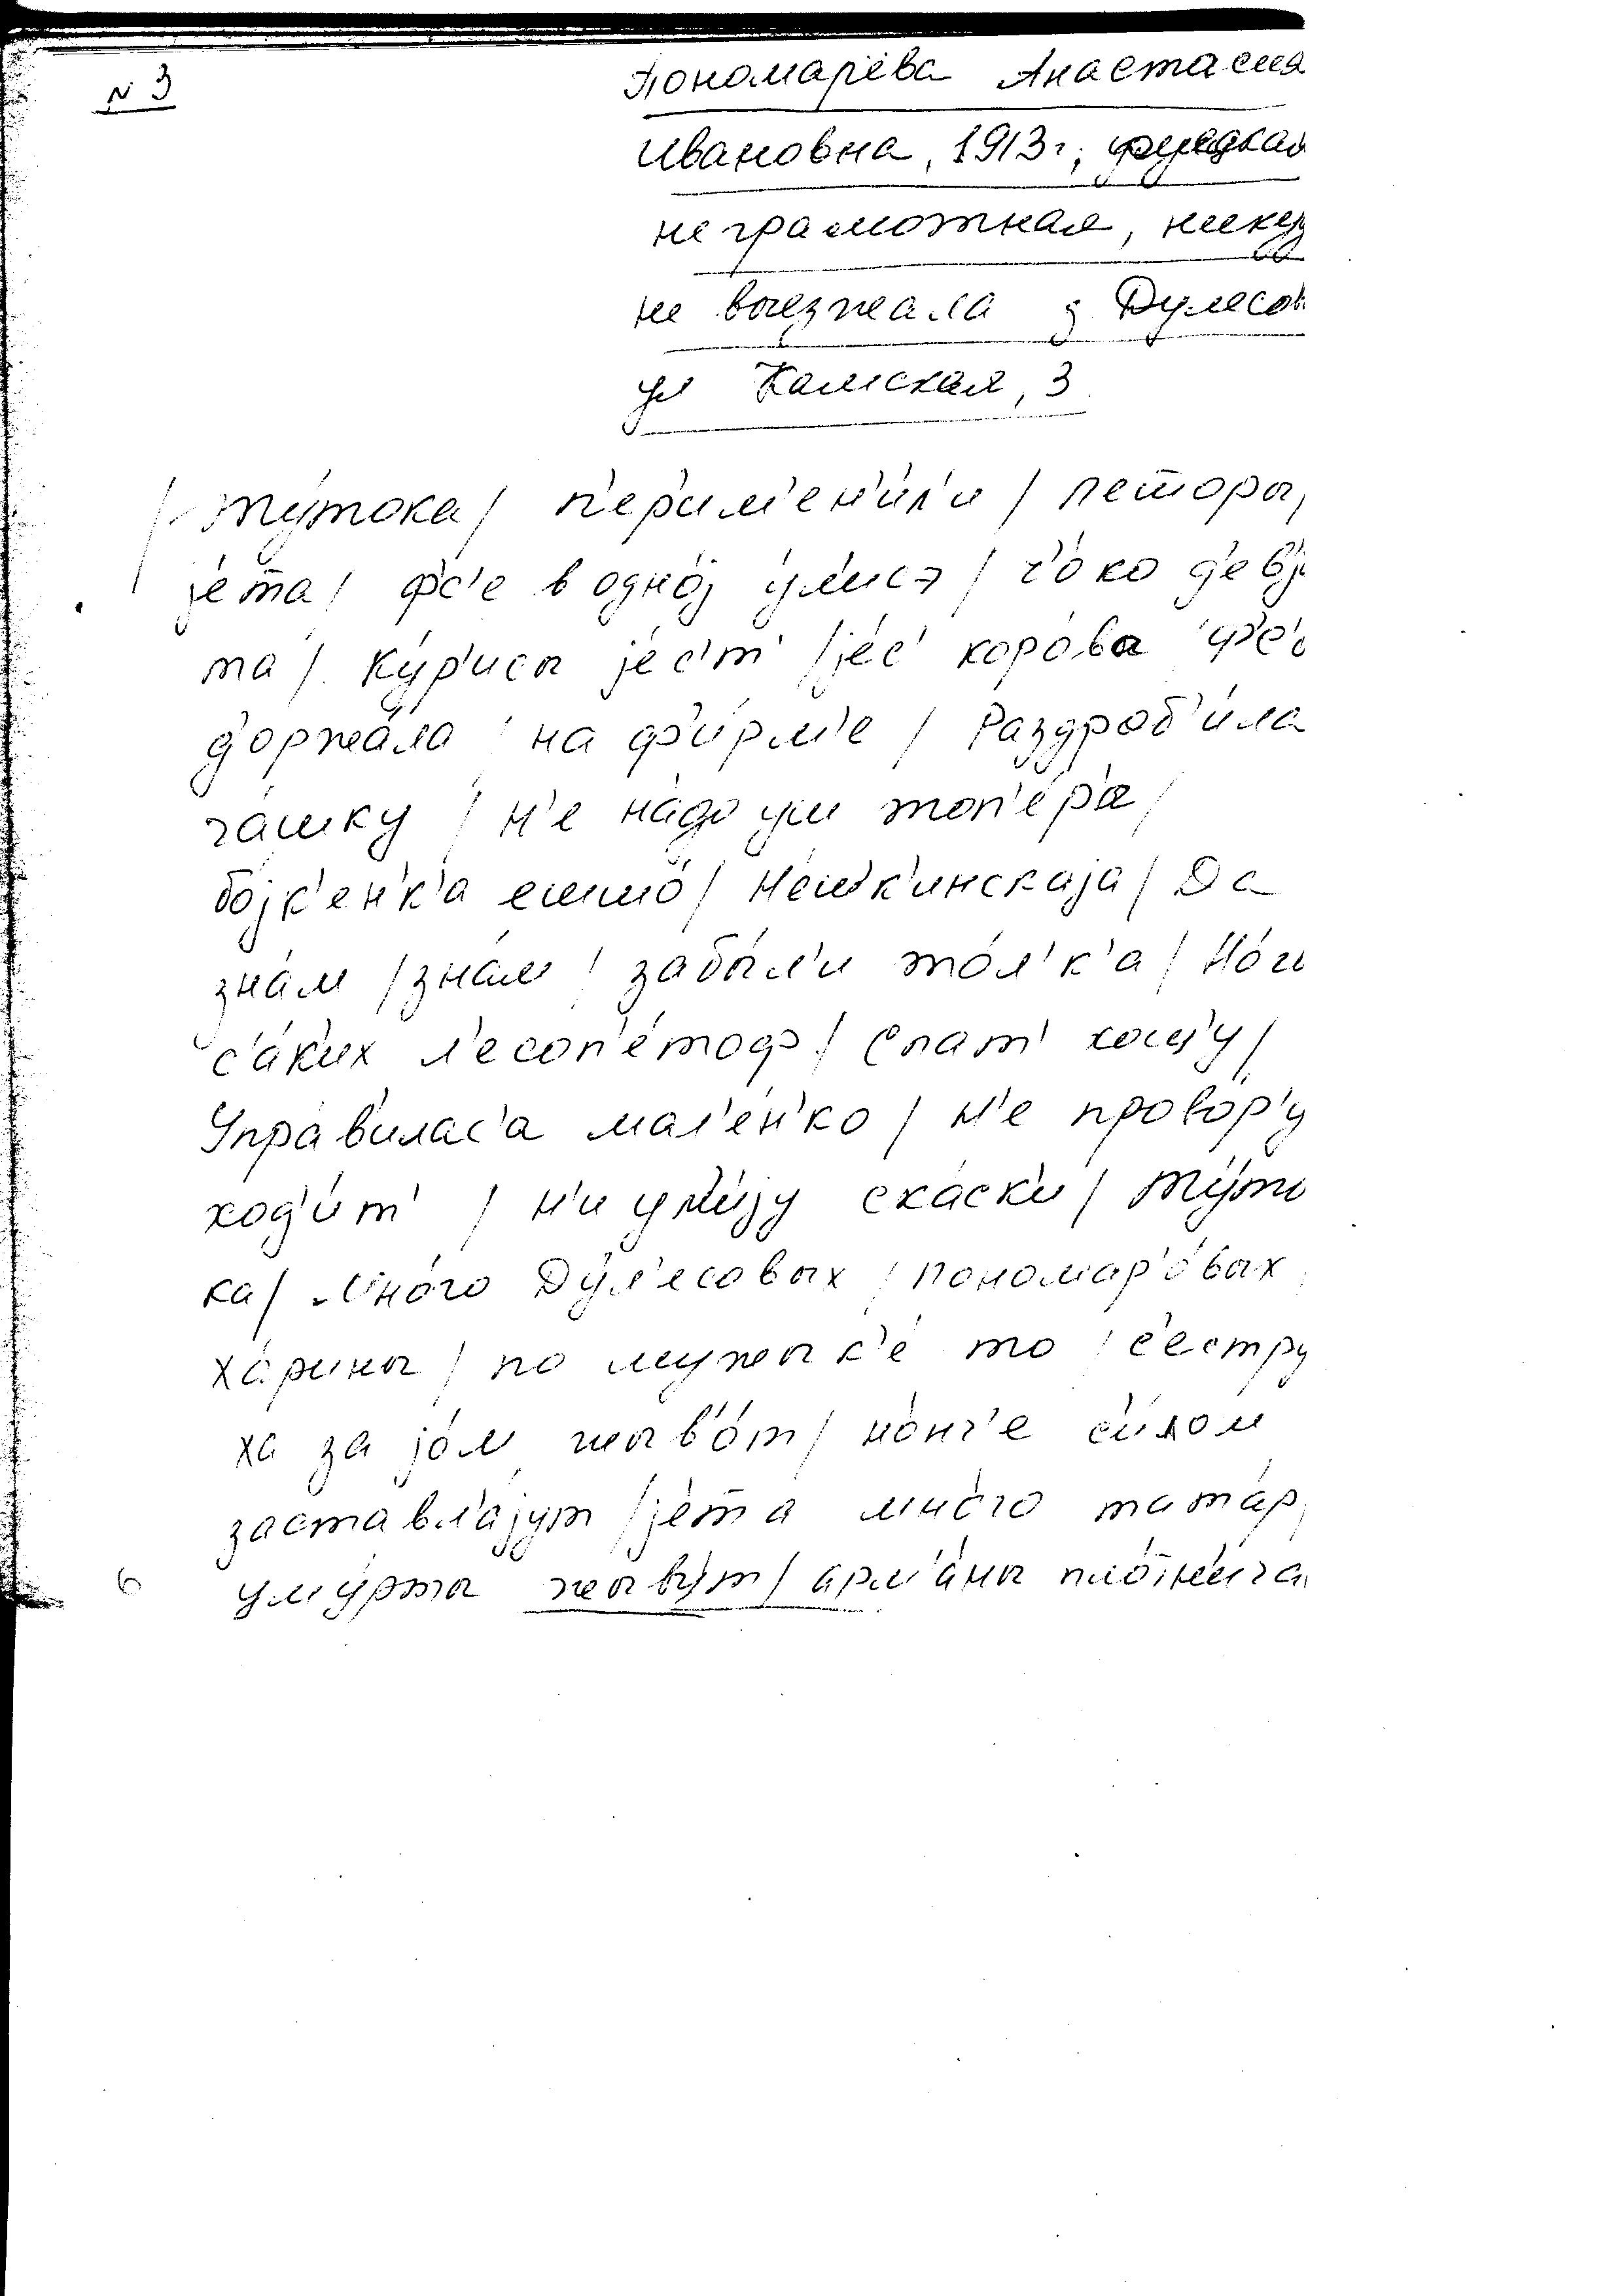 N 3
Пономарёва Анастасия
Ивановна, 1913 г,
неграмотная, нику
не выезжала з Дулесов
ул Камская, 3
/ ту́тока / п'ер'им'ен'и́л'и /
је́та / фс'е в одно́ј у́л'исэ / т'о́ко д'ев'ј
та́ / ку́р'исы је́с'т' / је́с' коро́ва
д'оржа́ла на ф'и́рм'е / Раздроб'и́ла
ча́шку / н'е на́до уш топ'е́р'а /
бо́јк'ен'к'а ешшо́ / Да
зна́м / зна́м / забы́л'и то́л'к'а /
с'а́ких л'есоп'е́тоф / Спат' хош'у́ /
Упра́вилас'а мал'е́н'ко / н'е прово́р'у
ход'и́т' / н'и ум'и́ју ска́ски / Ту́то
ка / Мно́го Ду́л'есовых / Пономар'о́вых
Ха́рины / по мужык'е́ то / с'естру
ха за јо́м жыв'о́т / но́нч'е си́лом
заставл'а́јут / је́та мно́го тата́р,
уму́рты жыву́т / арм'а́ны пло́тн'ича
6